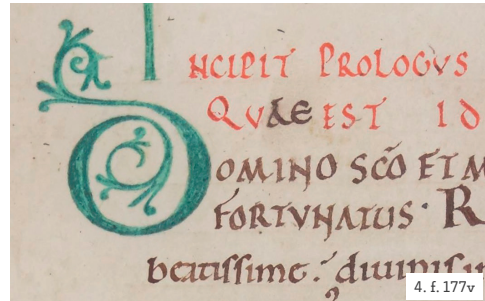 INCIPIT PROLOGVS
QVAE EST ID
DOMINO SCŌ ET M
FORTVNATUS · R
beatissime
4. f. 177v